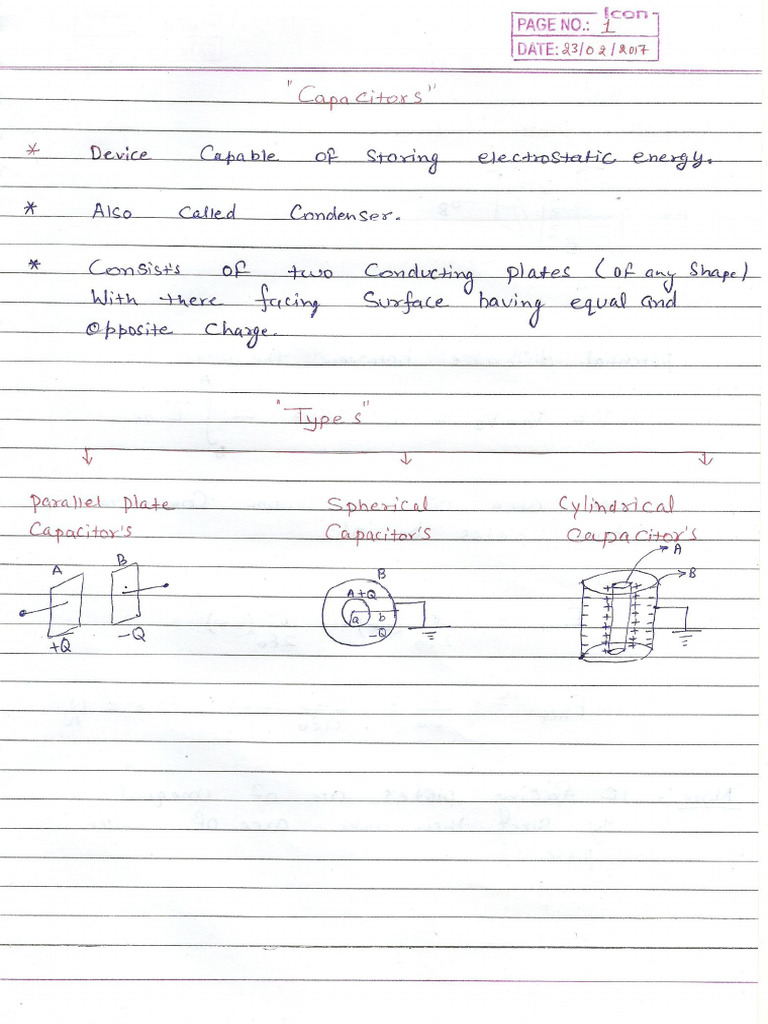 Icon
PAGE NO.: 1
DATE: 23/02/2017
"Capacitors"
* Device Capable of Storing electrostatic energy.
* Also Called Condenser.
* Consists of two Conducting plates (of any Shape)
With there facing Surface having equal and
Opposite Charge.
"Types"
Parallel plate
Capacitor's
Spherical
Capacitor's
Cylindrical
Capacitor's
A
B
+Q
-Q
B
A+Q
a
b
-Q
A
B